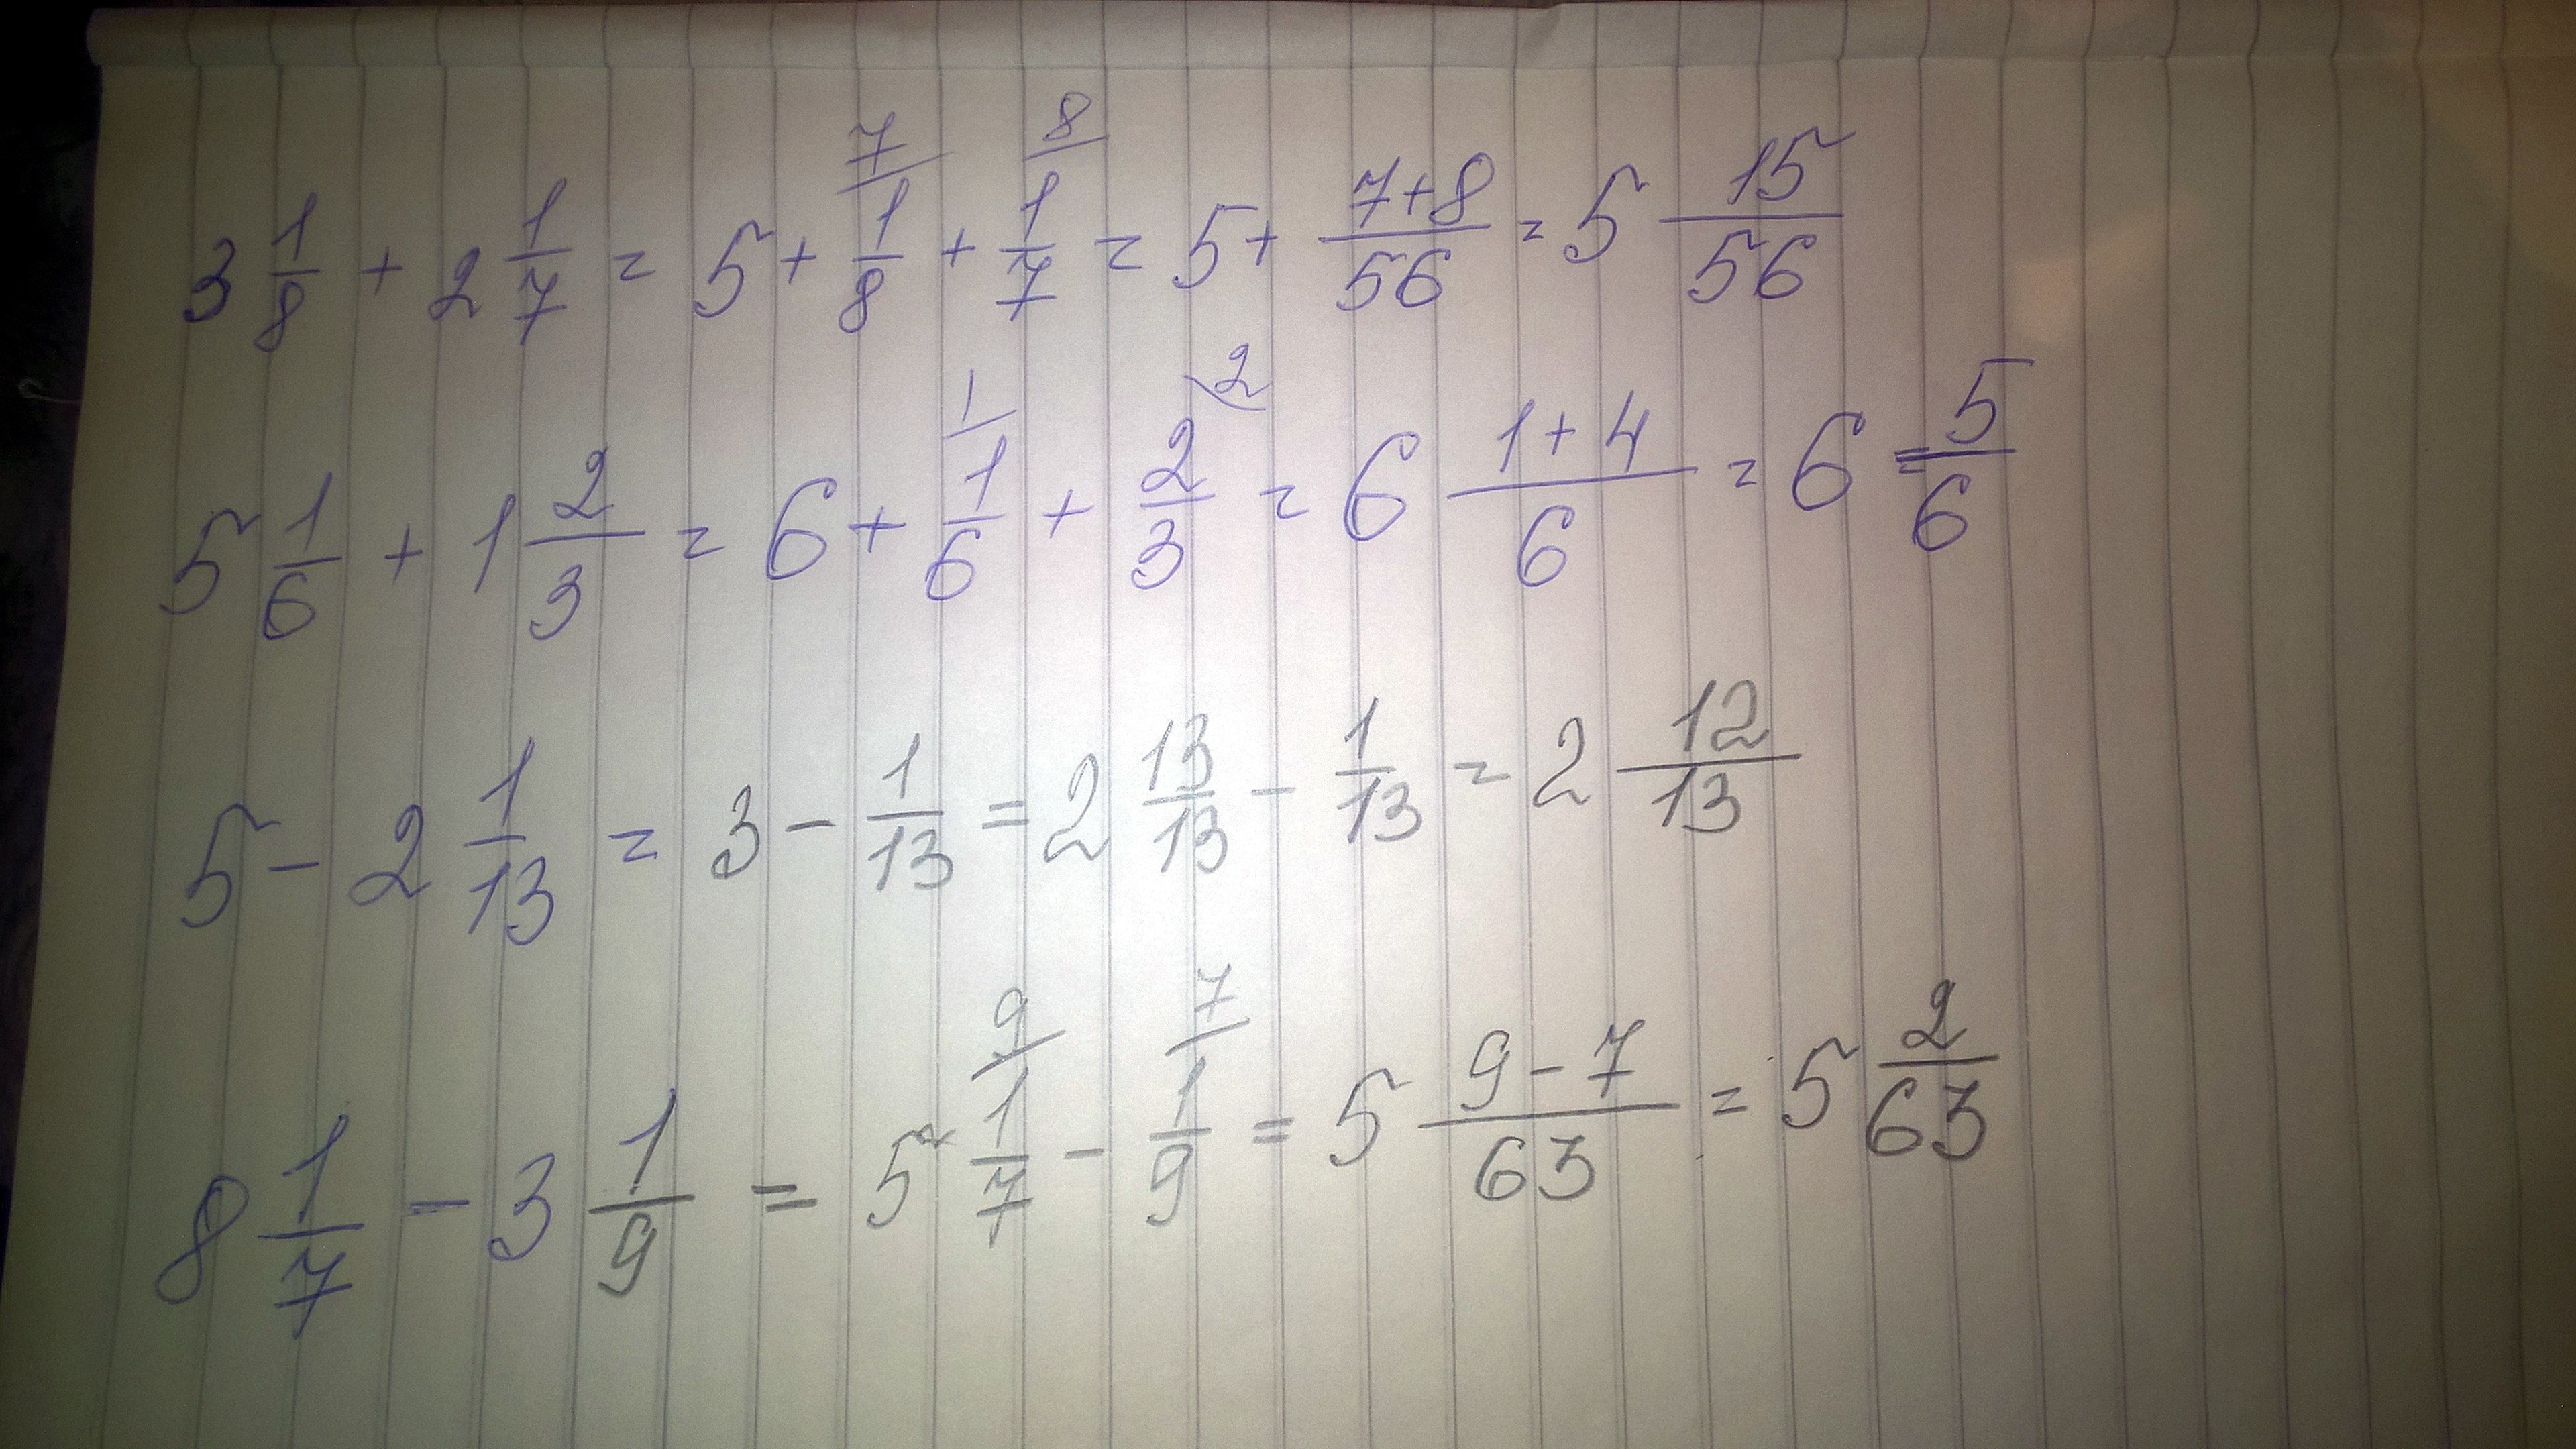 3 1/8 + 2 1/7 = 5 + 7/ 1/8 + 8/ 1/7 = 5 + (7+8)/56 = 5 15/56
5 1/6 + 1 2/3 = 6 + 1/ 1/6 + 2/3 \2 = 6 (1+4)/6 = 6 5/6
5 - 2 1/13 = 3 - 1/13 = 2 13/13 - 1/13 = 2 12/13
8 1/7 - 3 1/9 = 5 9/ 1/7 - 7/ 1/9 = 5 (9-7)/63 = 5 2/63